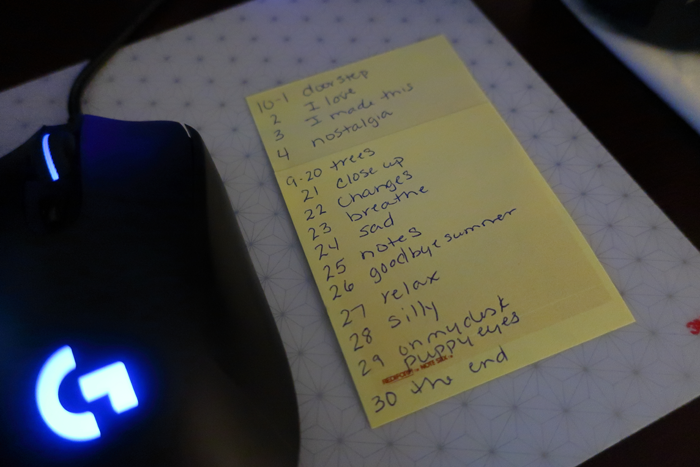 10-1 doorstep
2 I love
3 I made this
4 nostalgia
9-20 trees
21 close up
22 changes
23 breathe
24 sad
25 notes
26 goodbye summer
27 relax
28 silly
29 on my desk
puppy eyes
30 the end
G